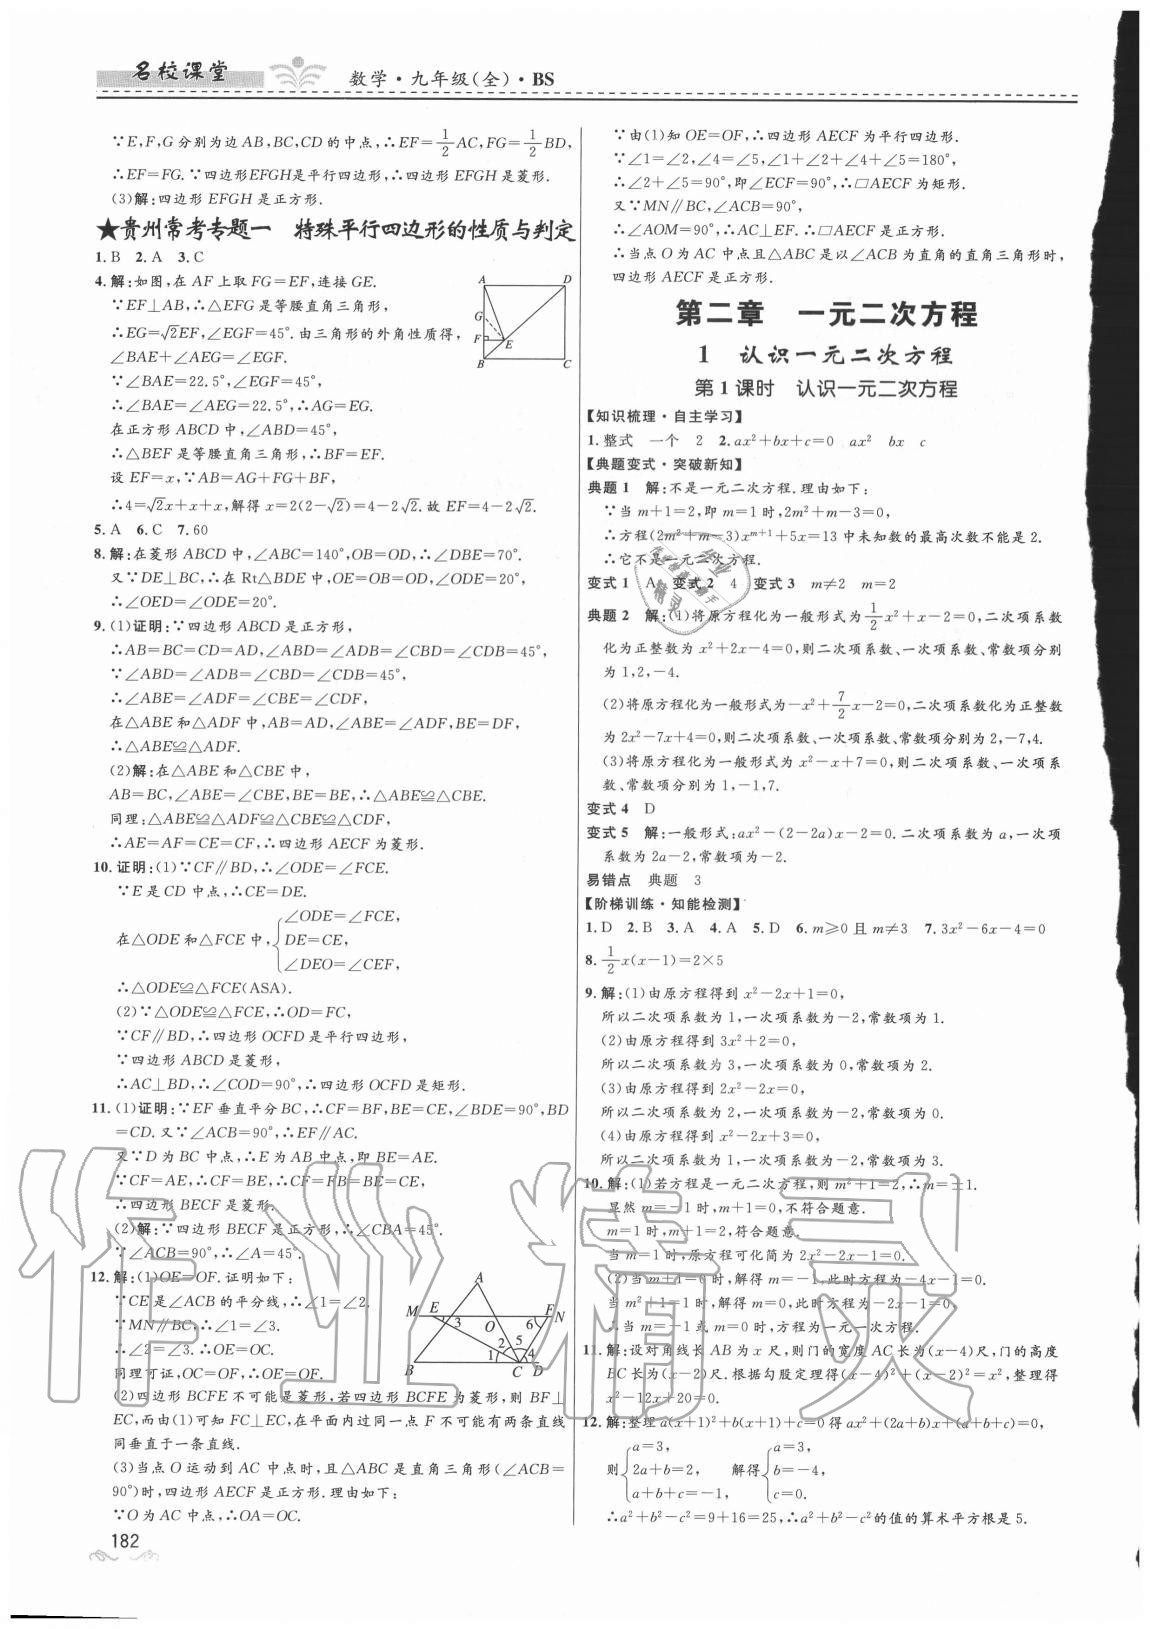 名校课堂
数学·九年级(全)·BS
∵E,F,G分别为边AB,BC,CD的中点,∴EF=1/2AC,FG=1/2BD,
∴EF=FG.∵四边形EFGH是平行四边形,∴四边形EFGH是菱形.
(3)解:四边形EFGH是正方形.
★贵州常考专题一 特殊平行四边形的性质与判定
1.B 2.A 3.C
4.解:如图,在AF上取FG=EF,连接GE.
∵EF⊥AB,∴△EFG是等腰直角三角形,
∴EG=√2EF,∠EGF=45°.由三角形的外角性质得,
∠BAE+∠AEG=∠EGF.
∵∠BAE=22.5°,∠EGF=45°,
∴∠BAE=∠AEG=22.5°,∴AG=EG.
在正方形ABCD中,∠ABD=45°,
∴△BEF是等腰直角三角形,∴BF=EF.
设EF=x,∵AB=AG+FG+BF,
∴4=√2x+x+x,解得x=2(2-√2)=4-2√2.故EF=4-2√2.
A
D
G
F
E
B
C
5.A 6.C 7.60
8.解:在菱形ABCD中,∠ABC=140°,OB=OD,∴∠DBE=70°.
又∵DE⊥BC,∴在Rt△BDE中,OE=OB=OD,∠ODE=20°,
∴∠OED=∠ODE=20°.
9.(1)证明:∵四边形ABCD是正方形,
∴AB=BC=CD=AD,∠ABD=∠ADB=∠CBD=∠CDB=45°,
∵∠ABD=∠ADB=∠CBD=∠CDB=45°,
∴∠ABE=∠ADF=∠CBE=∠CDF,
在△ABE和△ADF中,AB=AD,∠ABE=∠ADF,BE=DF,
∴△ABE≌△ADF.
(2)解:在△ABE和△CBE中,
AB=BC,∠ABE=∠CBE,BE=BE,∴△ABE≌△CBE.
同理:△ABE≌△ADF≌△CBE≌△CDF,
∴AE=AF=CE=CF,∴四边形AECF为菱形.
10.证明:(1)∵CF∥BD,∴∠ODE=∠FCE.
∵E是CD中点,∴CE=DE.
∠ODE=∠FCE,
在△ODE和△FCE中, DE=CE,
∠DEO=∠CEF,
∴△ODE≌△FCE(ASA).
(2)∵△ODE≌△FCE,∴OD=FC,
∵CF∥BD,∴四边形OCFD是平行四边形,
∵四边形ABCD是菱形,
∴AC⊥BD,∴∠COD=90°,∴四边形OCFD是矩形.
11.(1)证明:∵EF垂直平分BC,∴CF=BF,BE=CE,∠BDE=90°,BD
=CD.又∵∠ACB=90°,∴EF∥AC.
又∵D为BC中点,∴E为AB中点,即BE=AE.
∵CF=AE,∴CF=BE,∴CF=FB=BE=CE,
∴四边形BECF是菱形.
(2)解:∵四边形BECF是正方形,∴∠CBA=45°.
∵∠ACB=90°,∴∠A=45°.
12.解:(1)OE=OF.证明如下:
∵CE是∠ACB的平分线,∴∠1=∠2.
∵MN∥BC,∴∠1=∠3.
∴∠2=∠3.∴OE=OC.
同理可证,OC=OF,∴OE=OF.
A
M
E
3
O
6
F
N
2
5
1
4
B
C
D
(2)四边形BCFE不可能是菱形,若四边形BCFE为菱形,则BF⊥
EC,而由(1)可知FC⊥EC,在平面内过同一点F不可能有两条直线
同垂直于一条直线.
(3)当点O运动到AC中点时,且△ABC是直角三角形(∠ACB=
90°)时,四边形AECF是正方形.理由如下:
∵O为AC中点,∴OA=OC.
182
∵由(1)知OE=OF,∴四边形AECF为平行四边形.
∵∠1=∠2,∠4=∠5,∠1+∠2+∠4+∠5=180°,
∴∠2+∠5=90°,即∠ECF=90°,∴□AECF为矩形.
又∵MN∥BC,∠ACB=90°,
∴∠AOM=90°,∴AC⊥EF.∴□AECF是正方形.
∴当点O为AC中点且△ABC是以∠ACB为直角的直角三角形时,
四边形AECF是正方形.
第二章 一元二次方程
1 认识一元二次方程
第1课时 认识一元二次方程
【知识梳理·自主学习】
1.整式 一个 2 2.ax²+bx+c=0 ax² bx c
【典题变式·突破新知】
典题1 解:不是一元二次方程.理由如下:
∵当m+1=2,即m=1时,2m²+m-3=0,
∴方程(2m²+m-3)xᵐ⁺¹+5x=13中未知数的最高次数不能是2.
∴它不是一元二次方程.
变式1 A 变式2 4 变式3 m≠2 m=2
典题2 解:(1)将原方程化为一般形式为1/2x²+x-2=0,二次项系数
化为正整数为x²+2x-4=0,则二次项系数、一次项系数、常数项分别
为1,2,-4.
(2)将原方程化为一般形式为-x²+7/2x-2=0,二次项系数化为正整数
为2x²-7x+4=0,则二次项系数、一次项系数、常数项分别为2,-7,4.
(3)将原方程化为一般形式为x²-x+7=0,则二次项系数、一次项系
数、常数项分别为1,-1,7.
变式4 D
变式5 解:一般形式:ax²-(2-2a)x-2=0.二次项系数为a,一次项
系数为2a-2,常数项为-2.
易错点 典题 3
【阶梯训练·知能检测】
1.D 2.B 3.A 4.A 5.D 6.m≥0且m≠3 7.3x²-6x-4=0
8.1/2x(x-1)=2×5
9.解:(1)由原方程得到x²-2x+1=0,
所以二次项系数为1,一次项系数为-2,常数项为1.
(2)由原方程得到3x²+2=0,
所以二次项系数为3,一次项系数为0,常数项为2.
(3)由原方程得到2x²-2x=0,
所以二次项系数为2,一次项系数为-2,常数项为0.
(4)由原方程得到x²-2x+3=0,
所以二次项系数为1,一次项系数为-2,常数项为3.
10.解:(1)若方程是一元二次方程,则m²+1=2,∴m=±1.
显然m=-1时,m+1=0,不符合题意.
m=1时,m+1=2,符合题意.
当m=1时,原方程可化简为2x²-2x-1=0.
(2)当m+1=0时,解得m=-1,此时方程为-4x-1=0.
当m²+1=1时,解得m=0,此时方程为-2x-1=0,
∴当m=-1或m=0时,方程为一元一次方程.
11.解:设对角线长AB为x尺,则门的宽度AC长为(x-4)尺,门的高度
BC长为(x-2)尺.根据勾股定理得(x-4)²+(x-2)²=x²,整理得
x²-12x+20=0.
12.解:整理a(x+1)²+b(x+1)+c=0得ax²+(2a+b)x+(a+b+c)=0,
a=3, a=3,
则 2a+b=2, 解得 b=-4,
a+b+c=-1, c=0.
∴a²+b²-c²=9+16=25,∴a²+b²-c²的值的算术平方根是5.
作业精灵